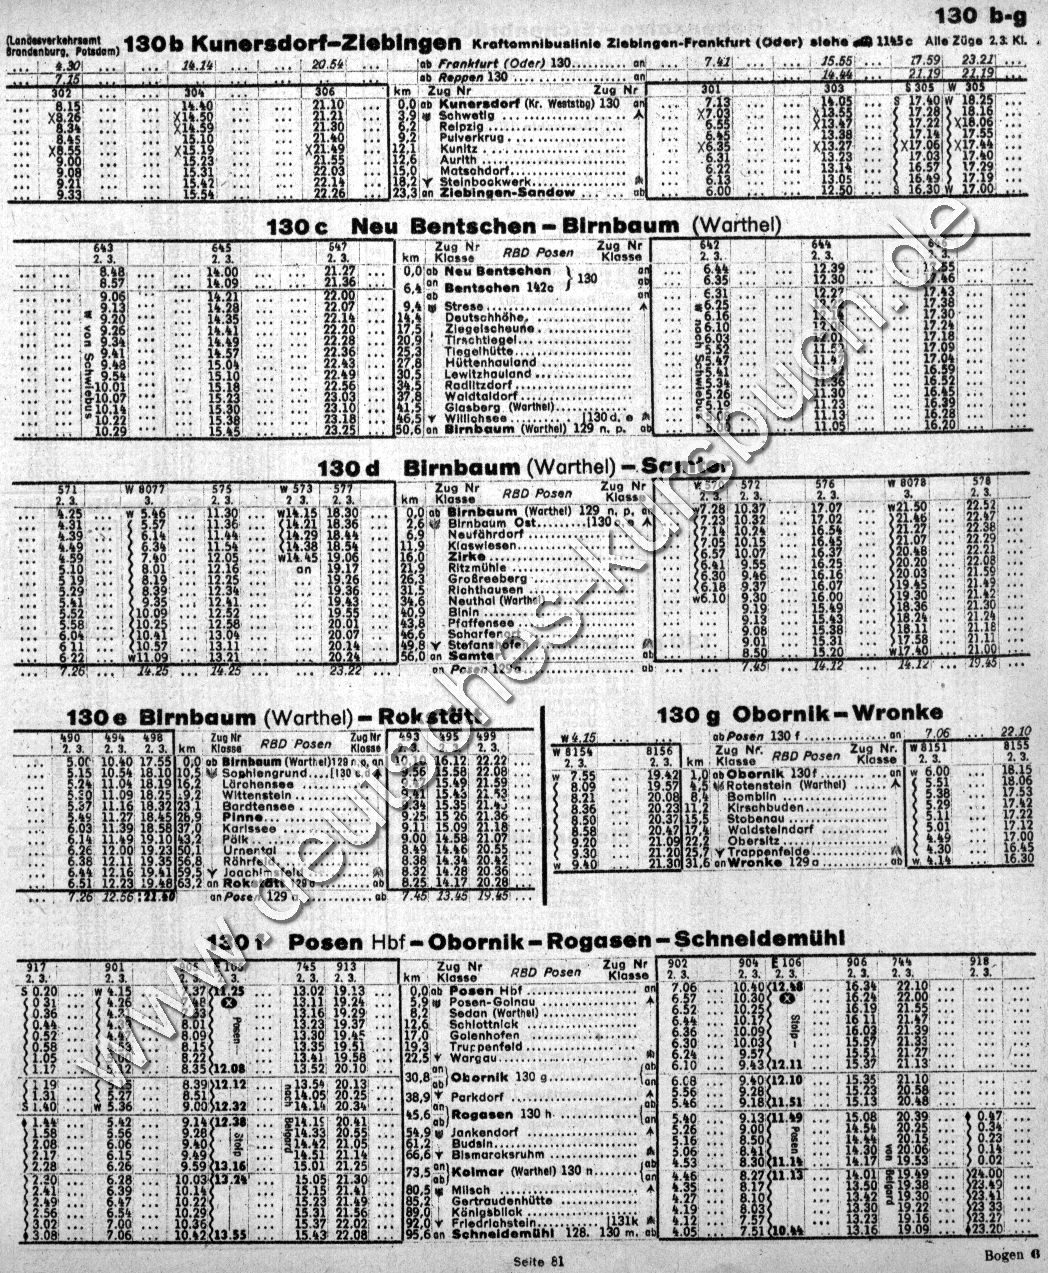 130 b-g
(Landesverkehrsamt Brandenburg, Potsdam) 130b Kunersdorf–Ziebingen Kraftomnibuslinie Ziebingen-Frankfurt (Oder) siehe 1145c Alle Züge 2.3. Kl.
... 4.30 ... 14.14 ... 20.54 ... ab Frankfurt (Oder) 130 an ... 7.41 ... 15.55 ... 17.59 23.21
... 7.15 ... ab Reppen 130 an ... 14.44 ... 21.19 21.19
302 304 306 km Zug Nr Zug Nr 301 303 S 305 W 305
8.15 14.40 21.10 0,0 ab Kunersdorf (Kr. Weststbg) 130 an 7.13 14.05 S 17.40 W 18.25
X8.26 X14.50 21.21 3,9 Schwetig X7.03 X13.55 17.28 18.16
8.34 X14.59 21.30 6,2 Reipzig 6.55 X13.47 17.22 X18.06
8.45 15.10 21.40 9,2 Pulverkrug 6.45 13.38 17.14 17.55
X8.55 X15.19 X21.49 12,1 Kunitz X6.35 X13.27 X17.06 X17.44
9.00 15.23 21.55 12,6 Aurith 6.31 13.23 17.03 17.40
9.08 15.31 22.03 15,0 Matschdorf 6.22 13.14 16.57 17.29
9.21 15.42 22.14 18,2 Steinbockwerk 6.13 13.05 16.49 17.19
9.33 15.54 22.26 23,3 an Ziebingen-Sandow ab 6.00 12.50 S 16.30 W 17.00
130 c Neu Bentschen – Birnbaum (Warthel)
643 645 647 Zug Nr RBD Posen Zug Nr 642 644 646
2. 3. 2. 3. 2. 3. km Klasse Klasse 2. 3. 2. 3. 2. 3.
8.48 14.00 21.27 0,0 ab Neu Bentschen 130 an 6.44 12.39
8.57 14.09 21.36 6,4 an Bentschen 142a ab 6.35 12.30
9.06 14.21 22.00 ab an 6.31 12.27 17.43
9.13 14.28 22.07 9,4 Strese W 6.25 17.38
9.20 14.35 22.14 14,4 Deutschhöhe 6.16 17.30
9.26 14.41 22.20 17,5 Ziegelscheune 6.10 17.24
9.34 14.49 22.28 20,9 Tirschtiegel 6.03 17.18
9.41 14.57 22.36 25,3 Tiegelhütte 5.52 17.09
9.48 15.04 22.43 27,8 Hüttenhauland 5.47 17.04
9.54 15.10 22.49 30,5 Lewitzhauland 5.41 16.59
10.01 15.18 22.56 34,5 Radlitzdorf 5.34 11.36 16.52
10.07 15.23 23.03 37,8 Waldtaldorf 5.26 11.30 16.45
10.14 15.30 23.10 41,5 Glasberg (Warthel) 5.19 11.23 16.39
10.22 15.38 23.18 46,5 Willichsee 130 d, e 11.13 16.28
10.29 15.45 23.25 50,6 an Birnbaum (Warthel) 129 n. p. ab 11.05 16.20
W von Schwiebus
W nach Schwiebus
130 d Birnbaum (Warthel) – Samter
571 W 8077 575 W 573 577 Zug Nr RBD Posen Zug Nr W 570 572 576 W 8078 578
2. 3. 3. 2. 3. 2. 3. 2. 3. km Klasse Klasse 2. 3. 2. 3. 2. 3. 3. 2. 3.
4.25 W 5.46 11.30 W14.15 18.30 0,0 ab Birnbaum (Warthel) 129 n. p. an W7.28 10.37 17.07 W21.50 22.52
4.31 5.57 11.36 14.21 18.36 2,6 Birnbaum Ost 7.23 10.32 17.02 21.46 22.47
4.39 6.14 11.44 14.29 18.44 6,9 Neufährdorf 7.14 10.24 16.54 21.27 22.38
4.49 6.34 11.54 14.38 18.54 11,9 Kloswiesen 7.05 10.15 16.45 21.07 22.29
4.59 7.40 12.05 W14.45 19.06 16,0 Zirke 6.57 10.07 16.37 20.48 22.21
5.10 8.01 12.16 an 19.17 21,9 Ritzmühle 6.41 9.56 16.25 20.20 22.08
5.19 8.19 12.25 19.26 26,3 Großreeberg 6.30 9.46 16.16 20.03 21.59
5.29 8.39 12.34 19.36 31,5 Richthausen 6.18 9.37 16.07 19.45 21.49
5.41 9.35 12.41 19.43 34,6 Neuthal (Warthel) W6.10 9.30 16.00 19.30 21.42
5.52 10.09 12.52 19.55 40,9 Binin 9.19 15.49 18.36 21.30
5.58 10.25 12.58 20.01 43,8 Pfaffensee 9.13 15.43 18.24 21.24
6.04 10.41 13.04 20.07 46,6 Scharfenort 9.08 15.38 18.11 21.18
6.11 10.57 13.11 20.14 49,8 Stefanshofen 9.01 15.31 17.58 21.11
6.22 W11.09 13.21 20.24 56,0 an Samter ab 8.50 15.20 W17.40 21.00
7.26 14.25 14.25 23.22 an Posen 129a ab 7.45 14.12 14.12 19.45
130 e Birnbaum (Warthel) – Rokstätt
490 494 498 Zug Nr RBD Posen Zug Nr 493 495 499
2. 3. 2. 3. 2. 3. km Klasse Klasse 2. 3. 2. 3. 2. 3.
5.00 10.40 17.55 0,0 ab Birnbaum (Warthel) 129 n. p. an 16.12 22.22
5.15 10.54 18.10 10,5 Sophiengrund 9.56 15.58 22.08
5.24 11.04 18.19 16,2 Lärchensee 15.49 21.59
5.30 11.09 18.25 19,2 Wittenstein 9.41 15.43 21.53
5.37 11.16 18.32 23,1 Bardtensee 9.34 15.35
5.49 11.27 18.45 26,9 Pinne 9.25 15.26 21.36
6.03 11.39 18.58 37,0 Karlssee 9.11 15.09 21.18
6.14 11.49 19.10 43,2 Pölk 9.00 14.58 21.07
6.26 12.00 19.23 50,1 Urnental 8.49 14.46 20.55
6.38 12.11 19.35 56,8 Röhrfeld 8.38 14.34 20.42
6.44 12.16 19.41 59,5 Joachimsfeld 8.32 14.28 20.36
6.51 12.23 19.48 63,2 an Rokstätt 129 ab 8.25 14.17 20.28
7.26 12.56 21.40 an Posen 129 a ab 7.45 13.45 19.45
130 g Obornik – Wronke
W 4.15 ab Posen 130 f an 7.06 22.10
W 8154 8156 Zug Nr. RBD Posen Zug Nr. W 8151 8155
2. 3. 2. 3. km Klasse Klasse 2. 3. 2. 3.
W 7.55 19.42 1,0 ab Obornik 130f an W 6.00 18.15
8.09 19.57 4,5 Rotenstein (Warthel) 5.51 18.06
8.21 20.08 8,4 Bomblin 5.38 17.53
8.36 20.23 11,2 Kirschbuden 5.29 17.42
8.50 20.37 15,5 Stobenau 5.11 17.22
8.58 20.47 17,4 Waldsteindorf 5.01 17.12
9.20 21.09 22,2 Obersitz 4.51 17.00
9.30 21.20 25,7 Trappenfelde 4.30 16.45
W 9.40 21.30 31,6 an Wronke 129 a ab W 4.14 16.30
130 f Posen Hbf – Obornik – Rogasen – Schneidemühl
917 901 905 E 105 745 913 Zug Nr RBD Posen Zug Nr 902 904 E 106 906 744 918
2. 3. 2. 3. 2. 3. 2. 3. 2. 3. km Klasse Klasse 2. 3. 2. 3. 2. 3. 2. 3. 2. 3. 2. 3.
S 0.20 W 4.15 7.37 11.25 13.02 19.13 0,0 ab Posen Hbf an 7.06 10.40 12.48 16.34 22.10
0.31 4.26 13.11 19.24 5,9 Posen-Golnau 6.57 10.30 16.24 22.00
0.36 13.16 19.29 8,2 Sedan (Warthel) 6.52 10.25 16.19 21.55
0.44 8.01 13.23 19.37 12,6 Schlottnick 6.44 10.17 16.11 21.47
0.52 8.09 13.30 19.45 17,0 Golenhofen 6.36 10.09 16.03 21.39
0.58 8.15 13.35 19.51 19,3 Truppenfeld 6.30 10.03 15.57 21.33
1.05 8.22 13.41 19.58 22,5 Wargau 6.24 9.57 15.51 21.27
1.17 8.35 12.08 13.52 20.10 30,8 an Obornik 130 g ab 6.10 9.43 12.11 15.37 21.13
1.19 8.39 12.12 13.54 20.13 ab an 6.08 9.40 12.10 15.35 21.10
1.31 5.27 8.51 14.05 20.25 38,9 Parkdorf 5.56 9.28 15.23 20.58
S 1.40 W 5.36 9.00 12.32 14.14 20.34 45,6 an Rogasen 130 h ab 5.46 9.18 11.51 15.13 20.48
1.44 5.42 9.14 12.38 14.19 20.41 ab an 5.40 9.13 11.49 15.08 20.39 0.47
1.58 5.56 9.28 14.33 20.55 54,9 Jankendorf 5.26 9.00 14.54 20.25 0.34
2.08 6.06 9.40 14.42 21.05 61,2 Budsin 5.16 8.50 14.44 20.15 0.23
2.17 6.15 9.49 14.51 21.14 66,6 Bismarcksruhm 5.06 8.41 14.30 20.06 0.14
2.28 6.26 9.59 13.16 15.01 21.25 73,5 an Kolmar (Warthel) 130 n ab 4.53 8.30 11.14 14.17 19.53 0.02
2.30 6.28 10.03 13.24 15.05 21.30 ab an 4.46 8.27 11.13 14.01 19.49 24.00
2.41 6.39 10.14 15.15 21.41 80,5 Milsch 4.35 8.17 13.50 19.38 23.49
2.49 6.47 10.22 15.23 21.49 85,2 Gertraudenhütte 4.27 8.10 13.42 19.30 23.41
2.56 6.54 10.29 15.31 21.56 89,0 Königsblick 4.19 8.03 13.30 19.22 23.33
3.02 7.00 10.36 15.37 22.02 92,0 Friedrichstein 131k 4.12 7.57 13.23 19.16 23.27
3.08 7.06 10.42 13.55 15.43 22.08 95,6 an Schneidemühl 128. 130 m. ab 4.05 7.51 10.44 13.16 19.09 23.20
Posen – Stolp
nach Belgard
Stolp
Posen
von Belgard
Seite 81
Bogen 6
www.deutsches-kursbuch.de